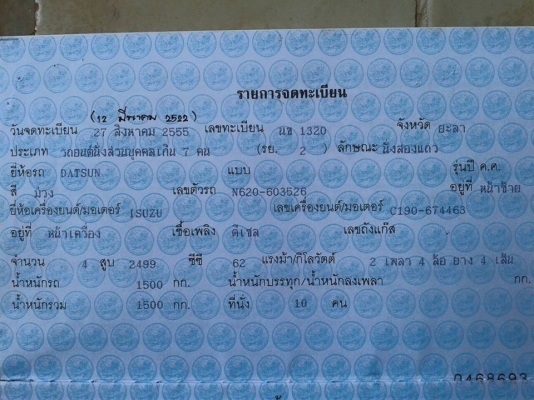 รายการจดทะเบียน
(12 มีนาคม 2522)
วันจดทะเบียน 27 สิงหาคม 2555 เลขทะเบียน นข 1320 จังหวัด ยะลา
ประเภท รถยนต์นั่งส่วนบุคคลเกิน 7 คน (รย. 2) ลักษณะ นั่งสองแถว
ยี่ห้อรถ DATSUN แบบ รุ่นปี ค.ศ.
สี ม่วง เลขตัวรถ N620-603526 อยู่ที่ หน้าซ้าย
ยี่ห้อเครื่องยนต์/มอเตอร์ ISUZU เลขเครื่องยนต์/มอเตอร์ C190-674463
อยู่ที่ หน้าเครื่อง เชื้อเพลิง ดีเซล เลขถังแก๊ส
จำนวน 4 สูบ 2499 ซีซี 62 แรงม้า/กิโลวัตต์ 2 เพลา 4 ล้อ ยาง 4 เส้น
น้ำหนักรถ 1500 กก. น้ำหนักบรรทุก/น้ำหนักลงเพลา กก.
น้ำหนักรวม 1500 กก. ที่นั่ง 10 คน
0468693